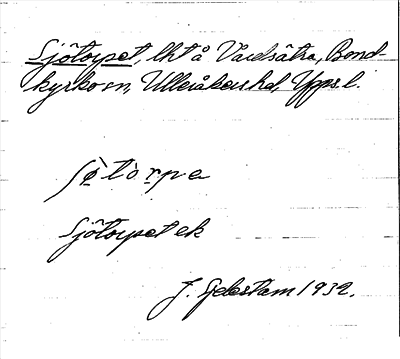 Sjötorpet, lht å Vårdsätra, Bond-
kyrko sn, Ulleråkers hd, Upps. l.
ʃø̀tòrpa
Sjötorpet ek
1932.